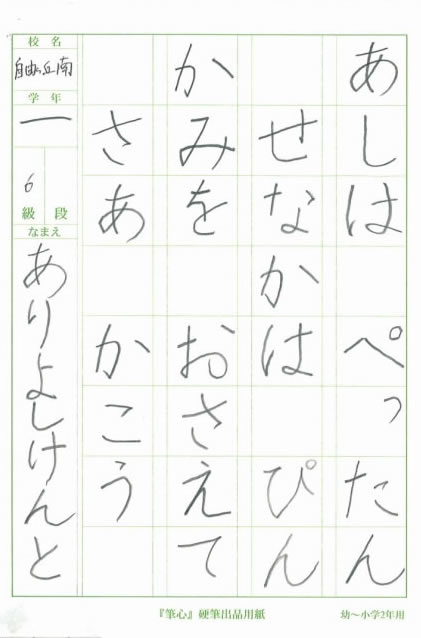 あしは ぺったん
せなかは ぴん
かみを おさえて
さあ かこう
校名
自由が丘南
学年
一
6
級 段
なまえ
ありよしけんと
『筆心』硬筆出品用紙
幼〜小学2年用